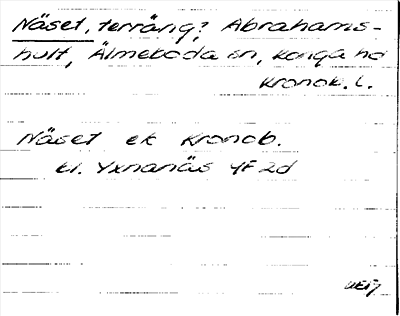 Näset, terräng? Abrahams-
hult, Älmeboda sn, Konga hd
Kronob. l.
Näset ek Kronob.
bl. Yxnanäs 4F 2d